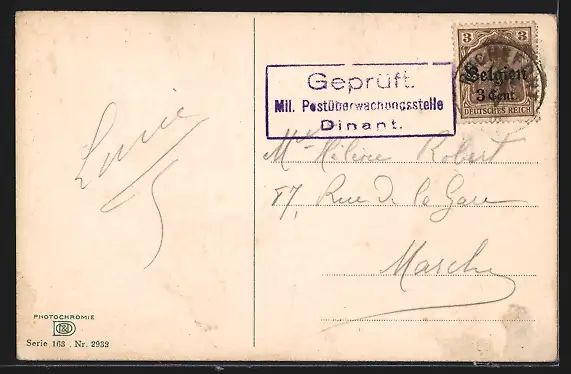 3 3
Belgien
3 Cent.
DEUTSCHES REICH
Geprüft.
Mil. Postüberwachungsstelle
Dinant.
Hélène Robert
87, Rue de la Gare
Marche
PHOTOCHROMIE
Serie 163 . Nr. 2932